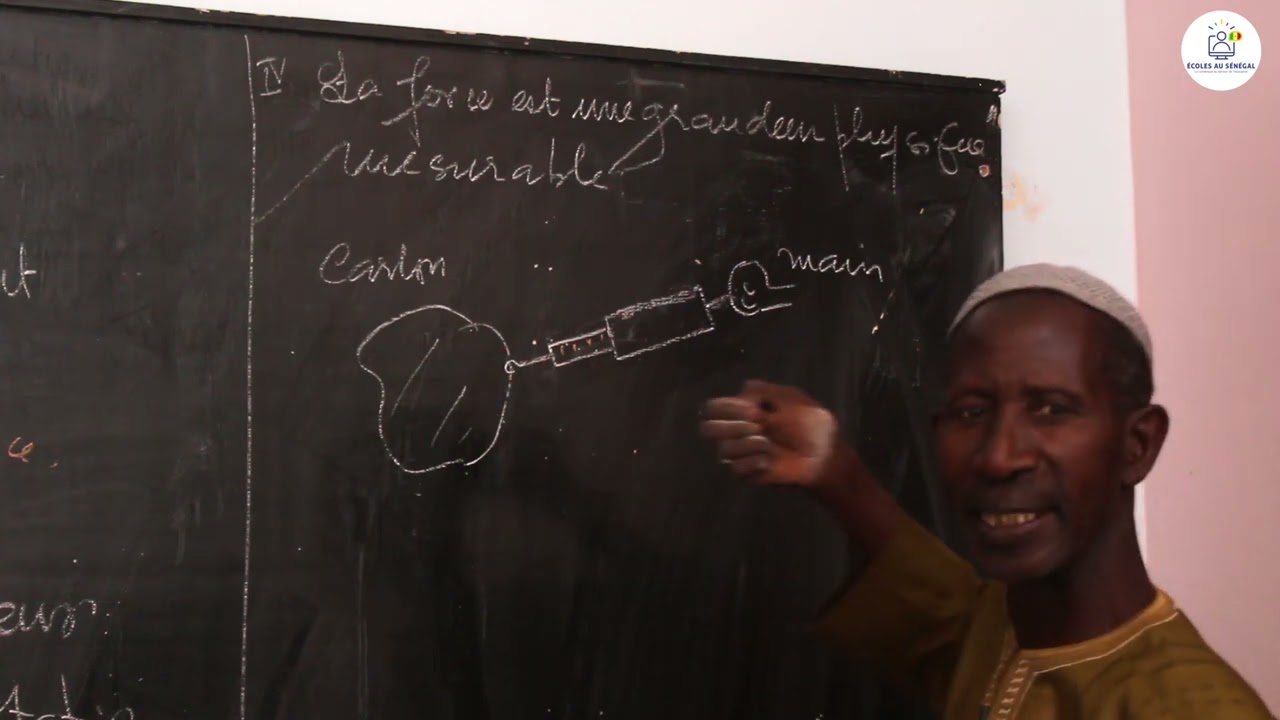 ut
ce.
eurs
IV La force est une grandeur physique
mesurable
Carton
main
ÉCOLES AU SÉNÉGAL